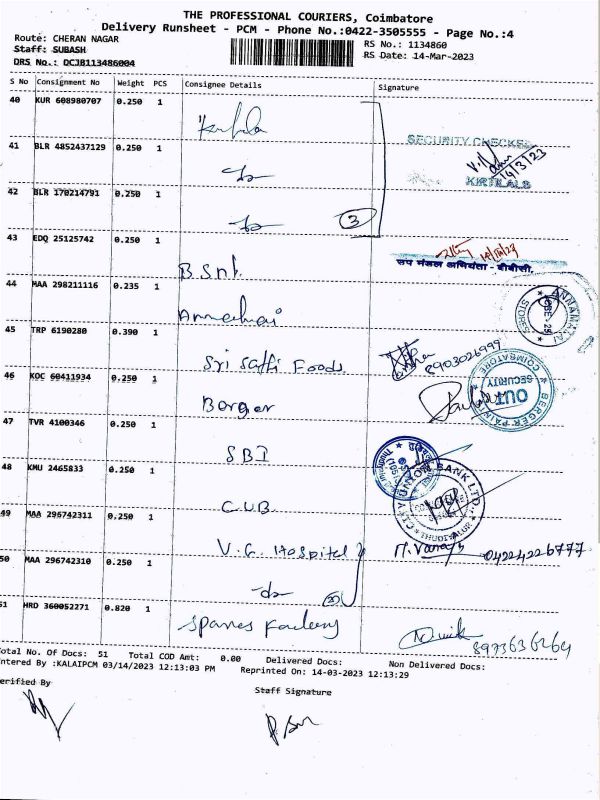 THE PROFESSIONAL COURIERS, Coimbatore
Delivery Runsheet - PCM - Phone No.:0422-3505555 - Page No.:4
Route: CHERAN NAGAR
RS No.: 1134860
Staff: SUBASH
RS Date: 14-Mar-2023
DRS No.: DCJB113486004
S No Consignment No Weight PCS Consignee Details Signature
40 KUR 608980707 0.250 1
SECURITY CHECKED
41 BLR 4852437129 0.250 1
14/3/23
KIRTILALS
42 BLR 170214791 0.250 1
3
43 EDQ 25125742 0.250 1
B.Snl.
उप मंडल अभियंता - बीबीसी.
44 MAA 298211116 0.235 1
Annamalai
ANNAMALAI
STORES
45 TRP 6190280 0.390 1
Sri Sakthi Foods
8903026999
46 KOC 60411934 0.250 1
Berger
BERGER PAINTS
COIMBATORE
OUT
SECURITY
47 TVR 4100346 0.250 1
SBI
48 KMU 2465833 0.250 1
C.U.B.
CITY UNION BANK LTD.
THUDIYALUR
49 MAA 296742311 0.250 1
V.G. Hospital
04224226777
50 MAA 296742310 0.250 1
51 HRD 360052271 0.820 1
Spares Factory
8973636264
Total No. Of Docs: 51 Total COD Amt: 0.00 Delivered Docs: Non Delivered Docs:
Entered By :KALAIPCM 03/14/2023 12:13:03 PM Reprinted On: 14-03-2023 12:13:29
Verified By
Staff Signature